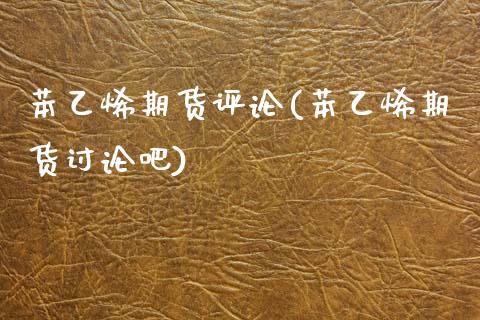 苯乙烯期货评论(苯乙烯期
货讨论吧)